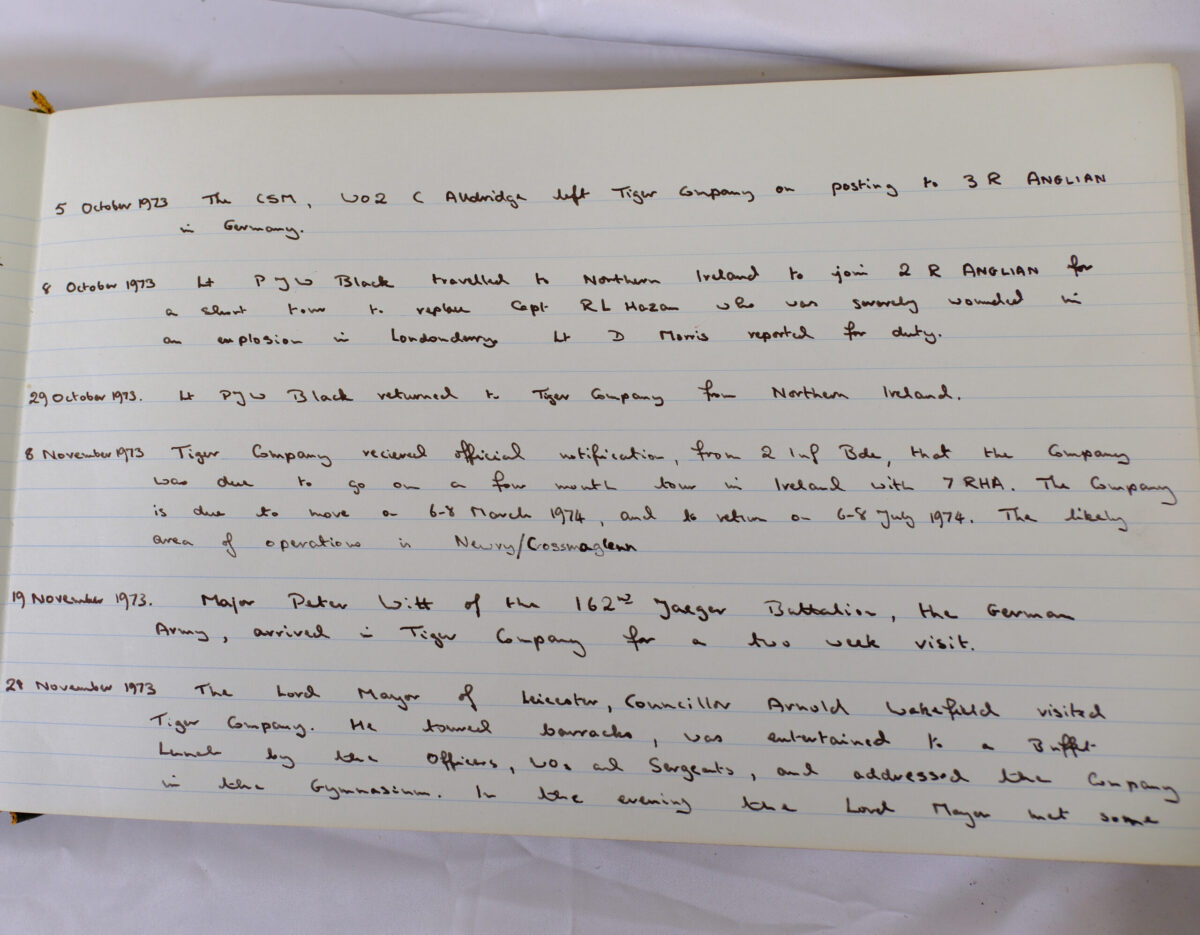 5 October 1973 The CSM, WO2 C Alldridge left Tiger Company on posting to 3 R ANGLIAN
in Germany.
8 October 1973 Lt P J W Black travelled to Northern Ireland to join 2 R ANGLIAN for
a short tour to replace Capt R L Hazan who was severely wounded in
an explosion in Londonderry. Lt D Morris reported for duty.
29 October 1973. Lt P J W Black returned to Tiger Company from Northern Ireland.
8 November 1973 Tiger Company recieved official notification, from 2 Inf Bde, that the Company
was due to go on a four month tour in Ireland with 7 RHA. The Company
is due to move on 6-8 March 1974, and to return on 6-8 July 1974. The likely
area of operations is Newry/Crossmaglenn
19 November 1973. Major Peter Witt of the 162nd Jaeger Battalion, the German
Army, arrived in Tiger Company for a two week visit.
November 1973 The Lord Mayor of Leicester, Councillor Arnold Wakefield visited
Tiger Company. He toured barracks, was entertained to a Buffet
Lunch by the Officers, WOs and Sergeants, and addressed the Company
in the Gymnasium. In the evening the Lord Mayor met some